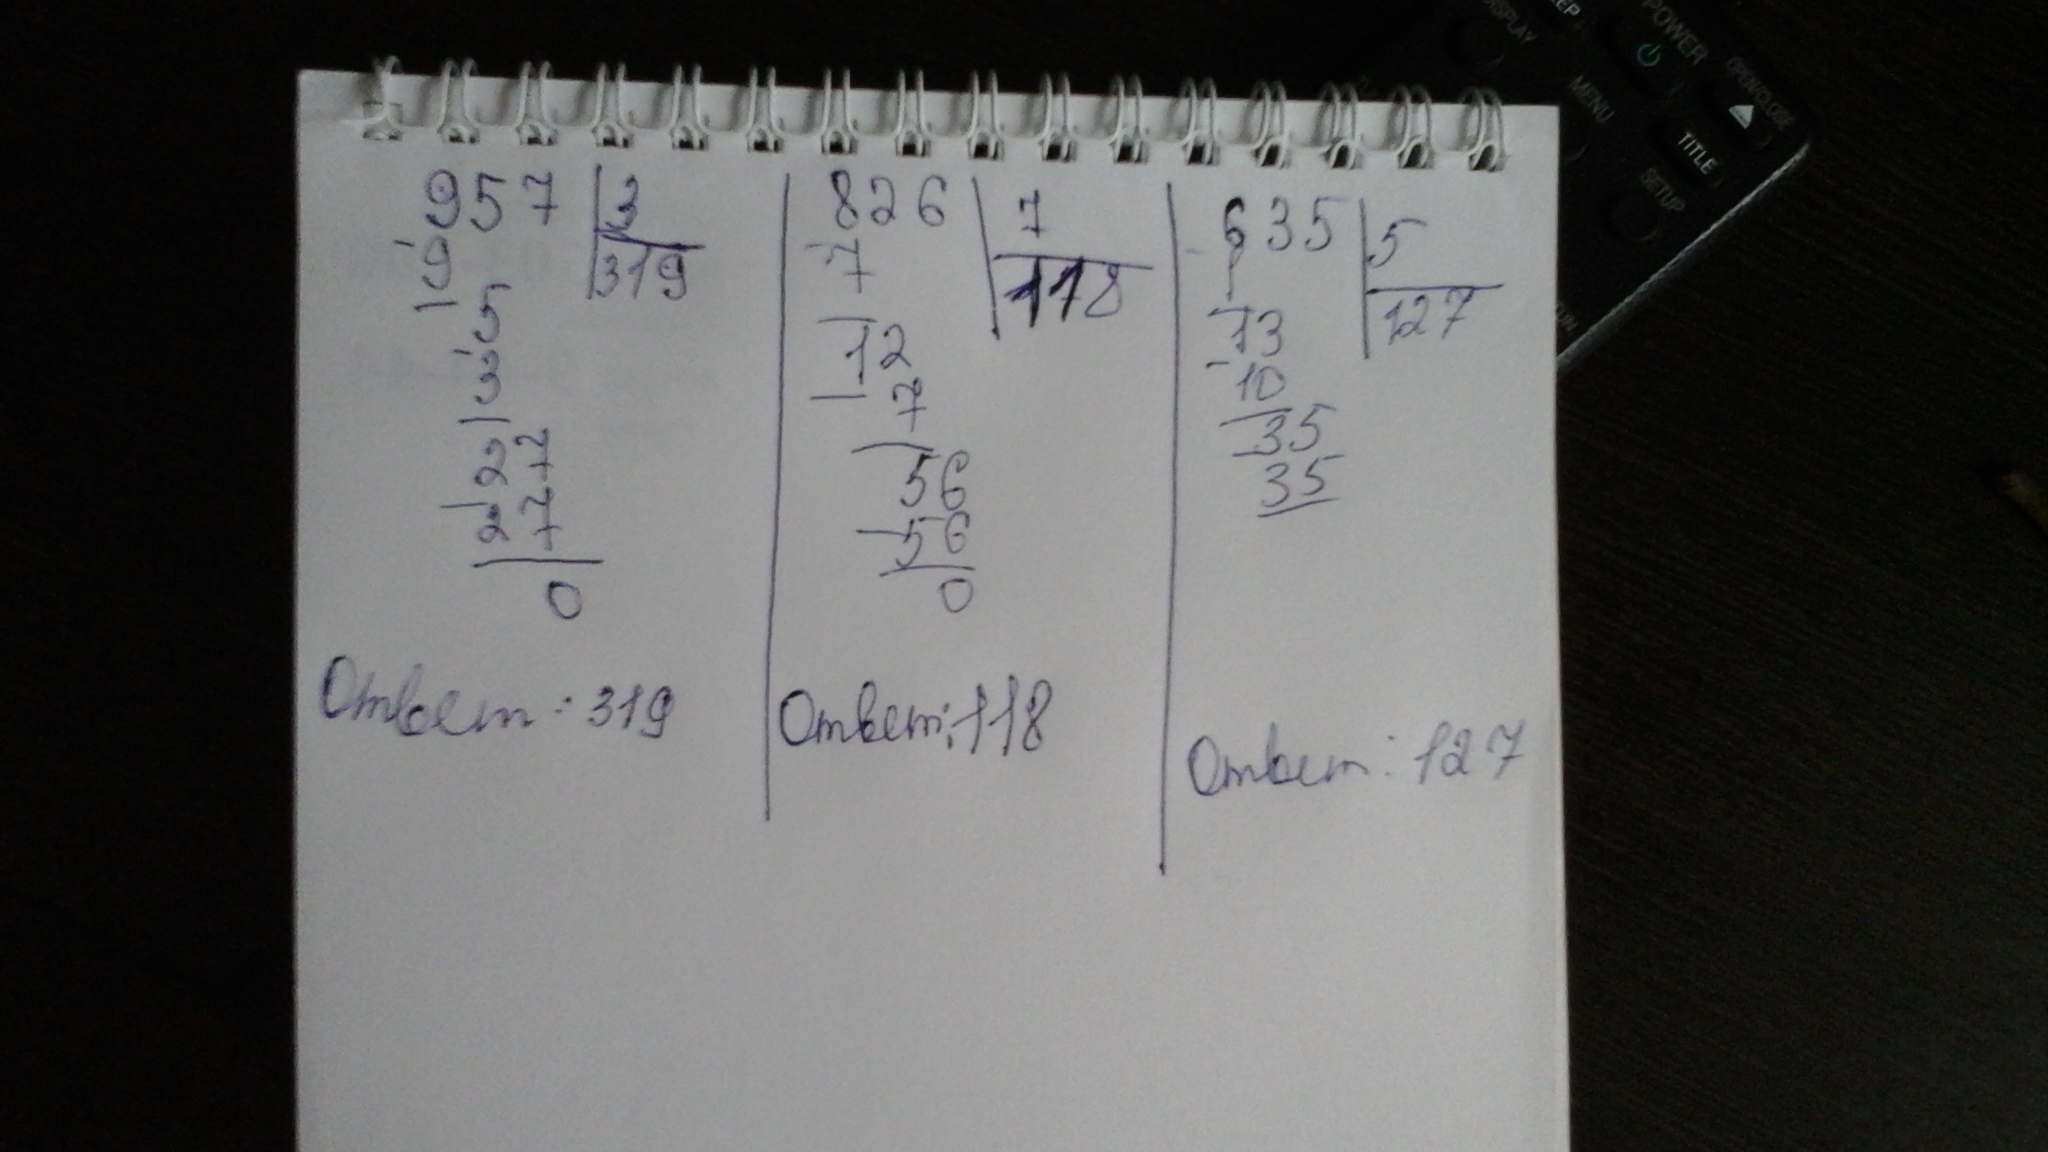 957 3
9 319
5
3
27
27
0
Ответ: 319
826 7
7 118
12
7
56
56
0
Ответ: 118
635 5
127
13
10
35
35
Ответ: 127
DISPLAY
MENU
POWER
OPEN/CLOSE
TITLE
SETUP